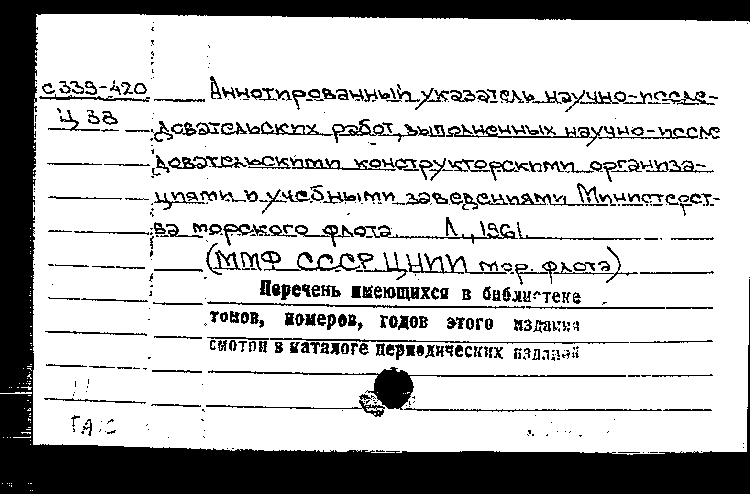 с339-420 Аннотированный указатель научно-иссле-
Ц38 довательских работ, выполненных научно-иссле
довательскими конструкторскими организа-
циями и учебными заведениями Министерст-
ва морского флота. Л., 1961.
(ММФ СССР. ЦНИИ мор. флота)
Перечень имеющихся в библиотеке
томов, номеров, годов этого издания
смотри в каталоге периодических изданий